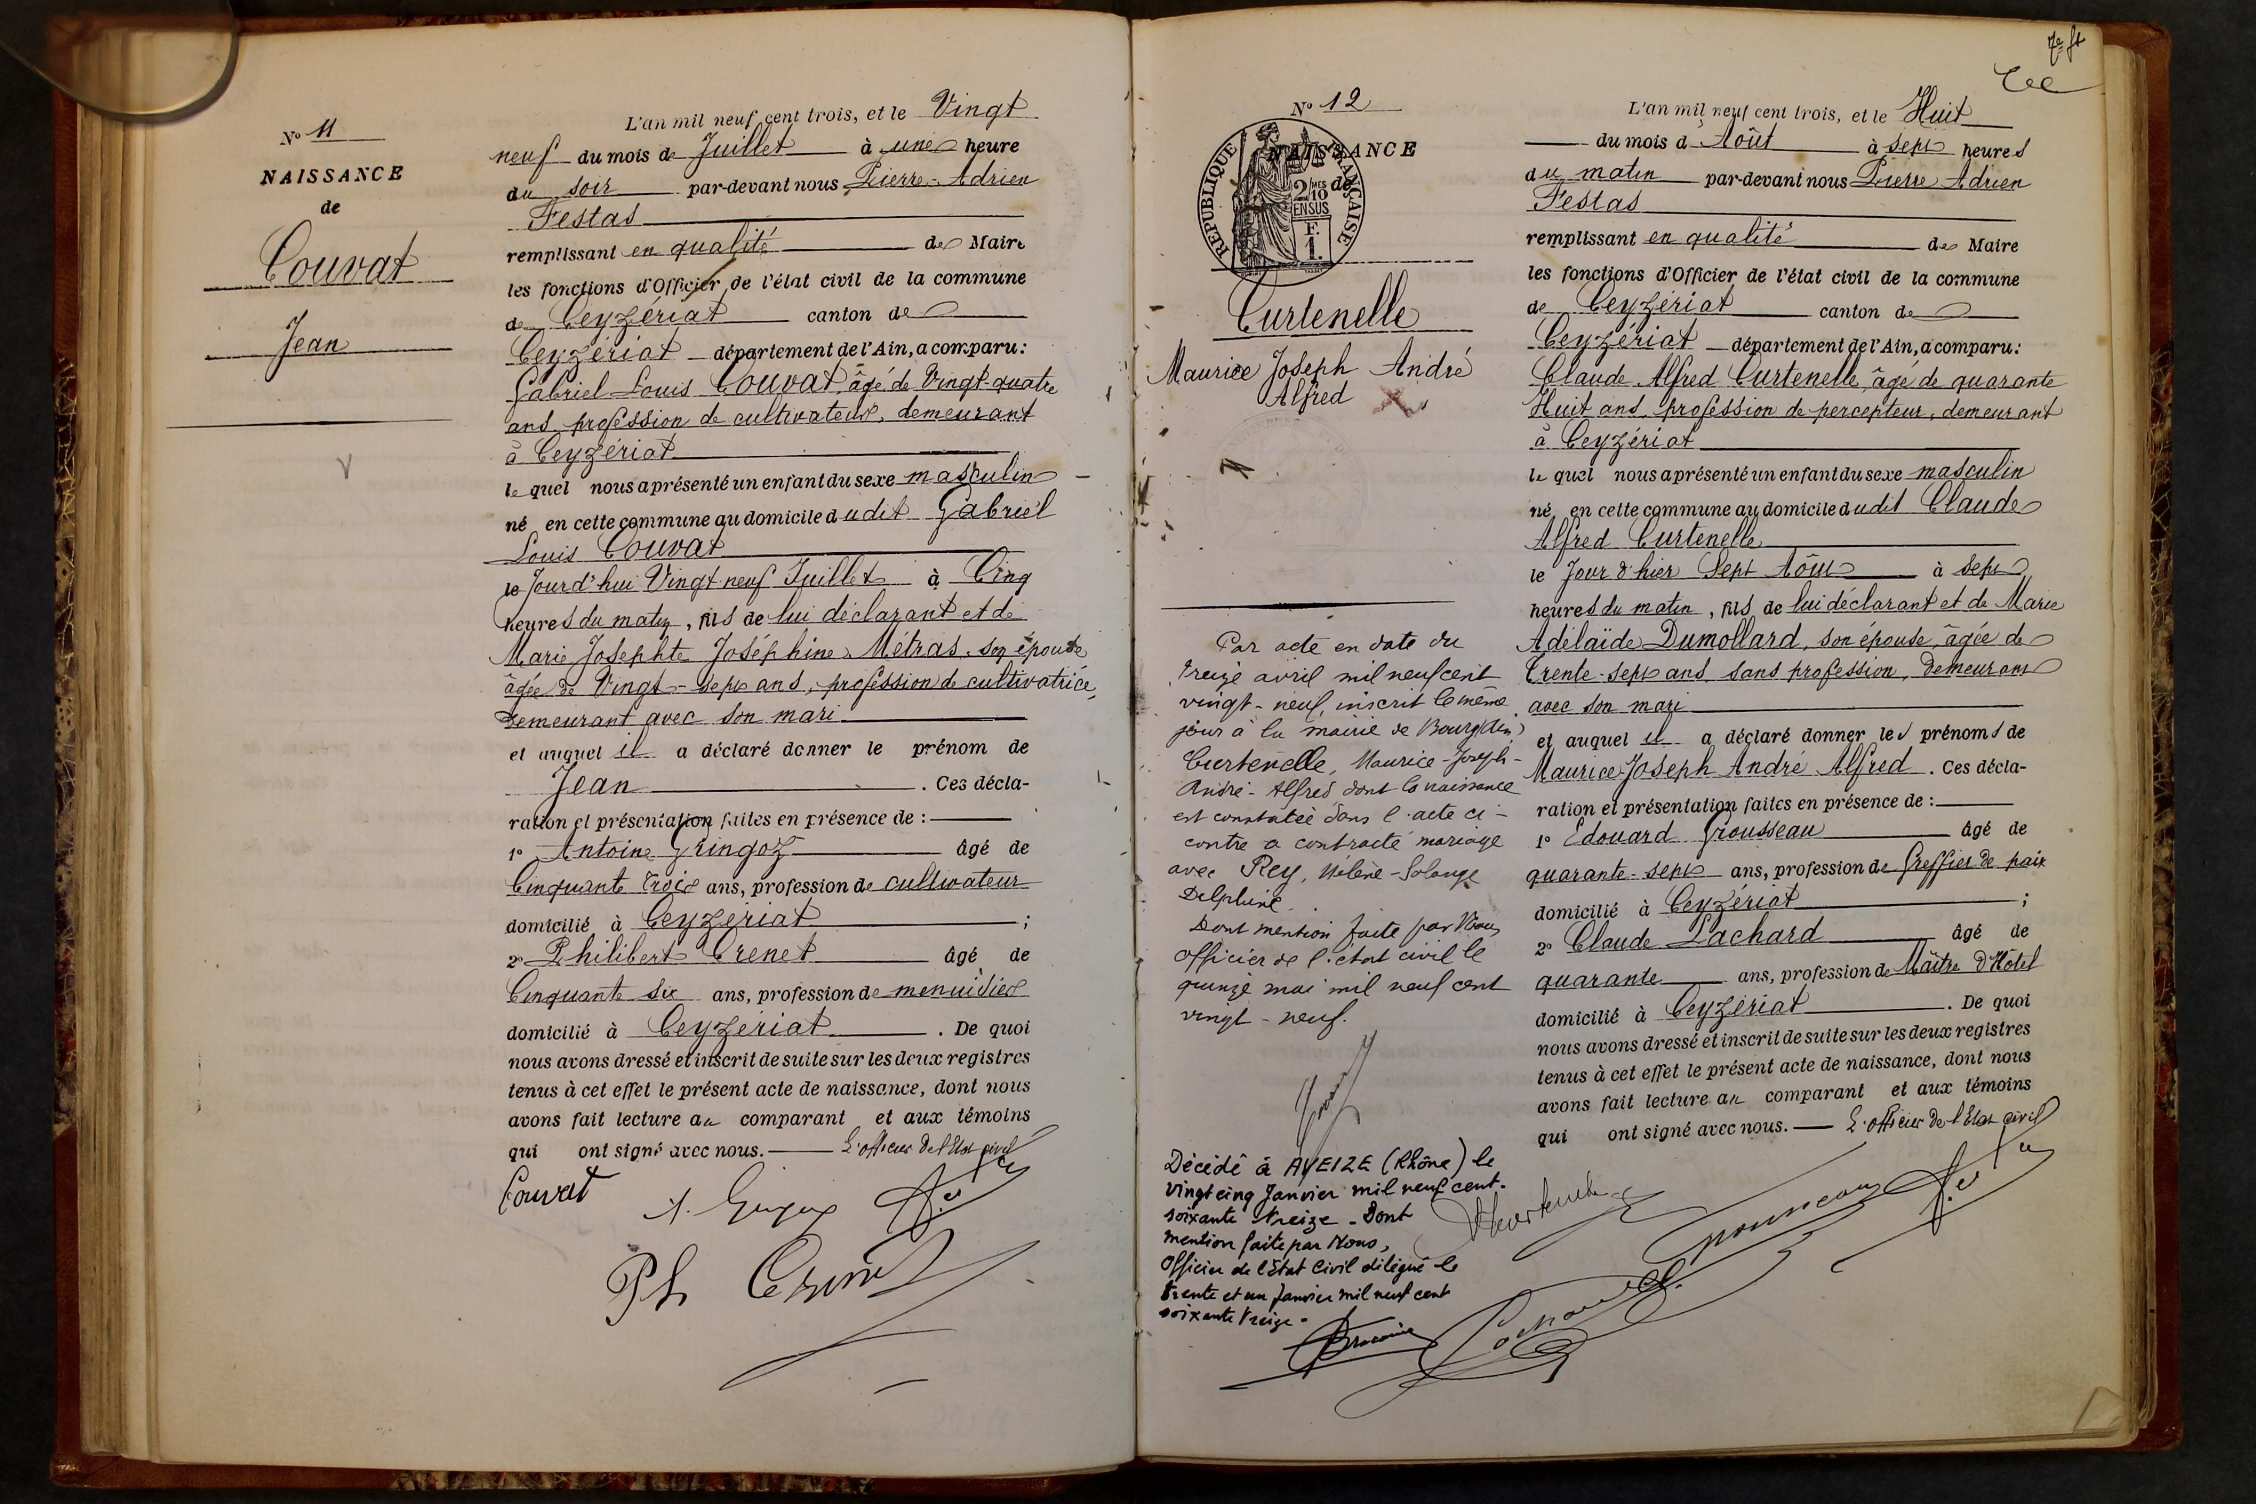 N° 11
NAISSANCE
de
Couvat
Jean
L'an mil neuf cent trois, et le Vingt
neuf du mois de Juillet à une heure
du soir par-devant nous Pierre-Adrien
Festas
remplissant en qualité de Maire
les fonctions d'Officier de l'état civil de la commune
de Ceyzériat canton de
Ceyzériat département de l'Ain, a comparu:
Gabriel Louis Couvat, âgé de Vingt-quatre
ans, profession de cultivateur, demeurant
à Ceyzériat
le quel nous a présenté un enfant du sexe masculin
né en cette commune au domicile dudit Gabriel
Louis Couvat
le Jourd'hui Vingt neuf Juillet à Cinq
heures du matin, fils de lui déclarant et de
Marie Josephte Joséphine Métras, son épouse
âgée de Vingt-sept ans, profession de cultivatrice,
demeurant avec son mari
et auquel il a déclaré donner le prénom de
Jean . Ces décla-
ration et présentation faites en présence de :
1° Antoine Gringoz âgé de
Cinquante trois ans, profession de cultivateur
domicilié à Ceyzériat ;
2° Philibert Crenet âgé de
Cinquante six ans, profession de menuisier
domicilié à Ceyzériat . De quoi
nous avons dressé et inscrit de suite sur les deux registres
tenus à cet effet le présent acte de naissance, dont nous
avons fait lecture au comparant et aux témoins
qui ont signé avec nous. L'officier de l'Etat civil
Couvat
Ph Crenet
7e ft
N° 12
NAISSANCE
de
REPUBLIQUE FRANÇAISE
2/10 MES
EN SUS
F.
1.
Curtenelle
Maurice Joseph André
Alfred
Par acte en date du
treize avril mil neuf cent
vingt-neuf, inscrit le même
jour à la mairie de Bourg (Ain)
Curtenelle, Maurice-Joseph-
André-Alfred dont la naissance
est constatée dans l'acte ci-
contre a contracté mariage
avec Rey, Hélène-Solange
Delphine.
Dont mention faite par Nous
officier de l'état civil le
quinze mai mil neuf cent
vingt-neuf.
Décédé à AVEIZE (Rhône) le
vingt cinq Janvier mil neuf cent-
soixante treize - Dont
mention faite par Nous,
Officier de l'État Civil délégué le
trente et un Janvier mil neuf cent
soixante treize.
L'an mil neuf cent trois, et le Huit
du mois d'Août à sept heures
du matin par-devant nous Pierre Adrien
Festas
remplissant en qualité de Maire
les fonctions d'Officier de l'état civil de la commune
de Ceyzériat canton de
Ceyzériat département de l'Ain, a comparu:
Claude Alfred Curtenelle, âgé de quarante
Huit ans, profession de percepteur, demeurant
à Ceyzériat
le quel nous a présenté un enfant du sexe masculin
né en cette commune au domicile dudit Claude
Alfred Curtenelle
le Jour d'hier Sept Aôut à sept
heures du matin, fils de lui déclarant et de Marie
Adélaïde Dumollard, son épouse, âgée de
Trente-sept ans, sans profession, demeurant
avec son mari
et auquel il a déclaré donner les prénoms de
Maurice Joseph André Alfred . Ces décla-
ration et présentation faites en présence de :
1° Edouard Grousseau âgé de
quarante-sept ans, profession de Greffier de paix
domicilié à Ceyzériat ;
2° Claude Lachard âgé de
quarante ans, profession de Maître d'Hôtel
domicilié à Ceyzériat . De quoi
nous avons dressé et inscrit de suite sur les deux registres
tenus à cet effet le présent acte de naissance, dont nous
avons fait lecture au comparant et aux témoins
qui ont signé avec nous. L'officier de l'Etat civil